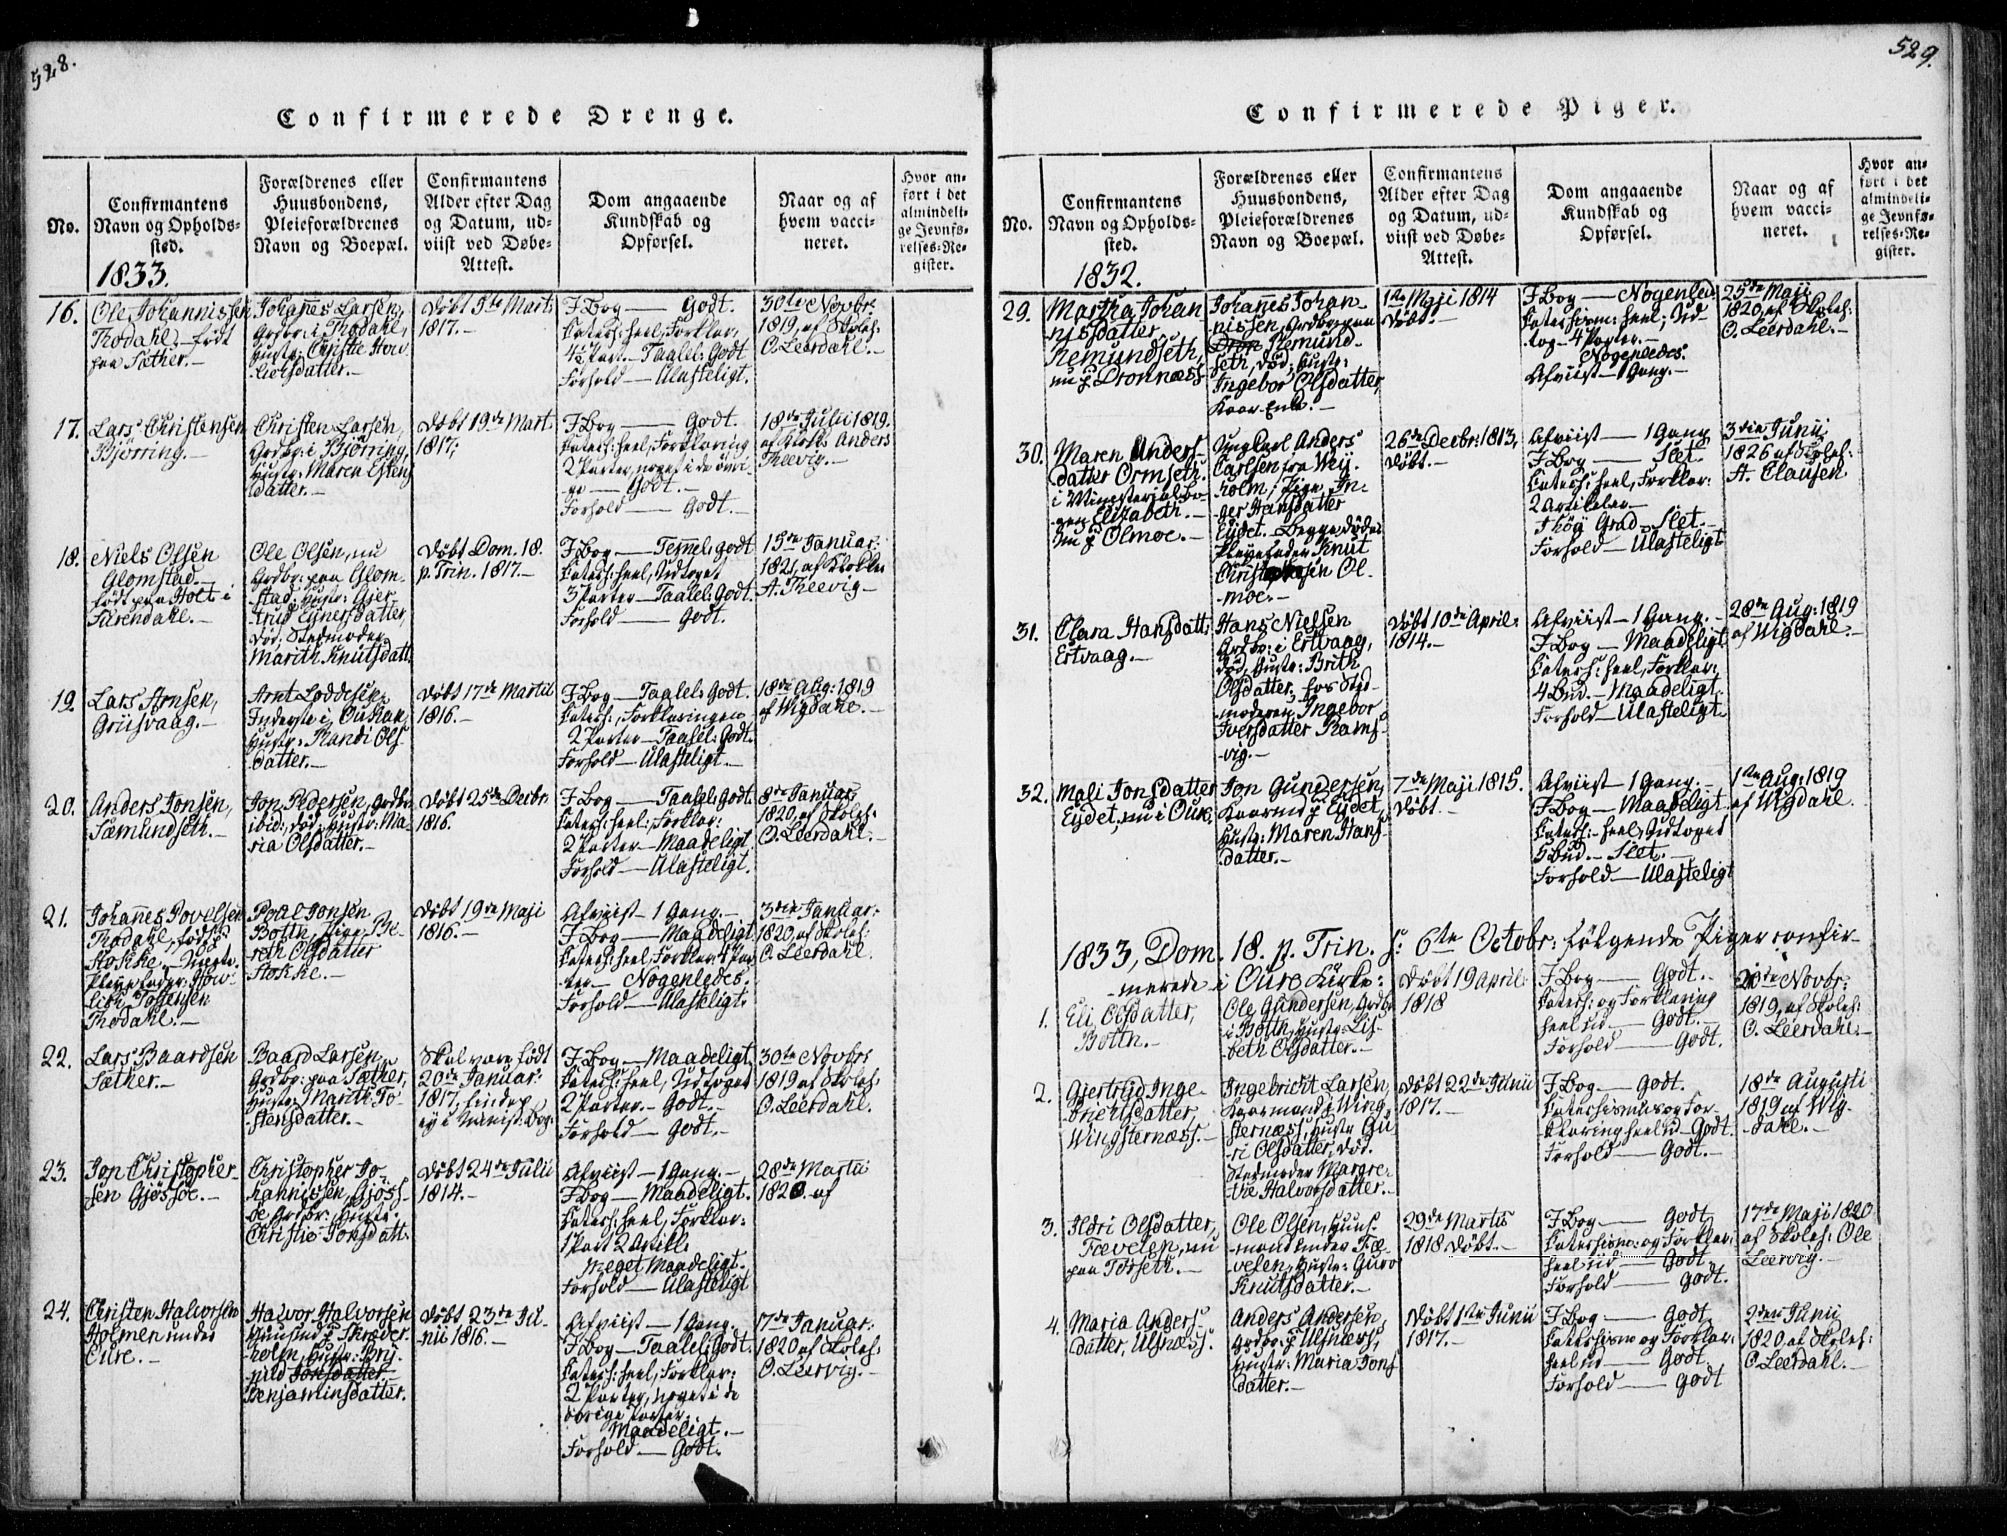 528.
Confirmerede Drenge.
No.
Confirmantens
Navn og Opholds-
sted.
1833.
Forældrenes eller
Huusbondens,
Pleieforældrenes
Navn og Boepæl.
Confirmantens
Alder efter Dag
og Datum, ud-
viist ved Døbe-
Attest.
Dom angaaende
Kundskab og
Opførsel.
Naar og af
hvem vacci-
neret.
Hvor an-
ført i det
almindeli-
ge Jevnfø-
relses-Re-
gister.
16.
Ole Johannissen
Thodahl, født
paa Sæther.-
Johanes Larsen,
Grdbr: i Thodahl,
Hustr: Christie How-
-lielsdatter.-
Døbt 5te Marti
1817.-
I Bog — Godt.
Catech: heel, Forklar:
4½ Part.- Taalel: Godt
Forhold — Ulasteligt.
30te Novbr:
1819, af Skoleh:
O. Leerdahl.-
17.
Lars Christensen
Bjørring.-
Christen Larsen,
Grdbr: i Bjørring,
Hustr: Maren Estens
datter.-
Døbt 19de Marti
1817,
I Bog — Godt.
Catech: heel, Forklaring
2 Parter, noget i de øvri-
ge — Godt.-
Forhold — Godt.-
18de Julii 1819.
af Klokk: Anders
Theevig.-
18.
Niels Olsen
Glomstad.-
født paa Holt i
Surendahl.-
Ole Olsen, nu
Grdbr: paa Glom-
stad, Hustr: Gjer-
trud Ejnersdatter,
død, Stedmoder
Marith Knutsdatt:
Døbt Dom. 18.
p. Trin. 1817.-
I Bog — Temmel: Godt
Catech: heel, Udtoget
3 Parter — Taalel: Godt.
Forhold — Godt.
15de Januar:
1821, af Klokker
A. Theevig —
19.
Lars Arnsen,
Griisvaag.-
Arnt Loddesen,
Inderste i
Hustr: Randi Ols
datter.-
Døbt 17de Martii
1816.-
I Bog — Taalel: Godt.
Catech:, Forklaringen
2 Parter — Taalel: Godt.
Forhold — Ulasteligt.-
18de Aug: 1819
af Wigdahl.-
20.
Anders Jonsen,
Sæmundseth.-
Jon Pedersen, Grdbr:
ibid:, død, Hustr: Ma-
ria Olsdatter.-
Døbt 25de Decbr:
1816.
I Bog — Taalel: Godt.
Catech: heel, Forklar:
2 Parter — Maadeligt
Forhold — Ulasteligt.
8de Januar
1820, af Skoleh:
O. Leerdahl.-
21.
Johanes Povelsen
Thodahl, født p
Stokke.-
Plejefader: How-
Thodahl.-
Poul Jonsen
Bottn, Pige Be-
reth Olsdatter
Stokke.-
Døbt 19de Maji
1816.-
Afviist — 1 Gang.-
I Bog — Maadeligt
Catech: heel, Forklar: 4 Par
ter — Nogenledes.
Forhold — Ulasteligt.
3die Januar:
1820, af Skoleh:
O. Leerdahl.
22.
Lars Baardsen
Sæther.-
Baard Larsen,
Grdbr: paa Sæther,
Hustr: Marith To-
stensdatter.-
Skal være født
20de Januar:
1817, findes
ej i Minist: Bog:
I Bog — Maadeligt.
Catech: heel, Udtoget
2 Parter.- Godt.-
Forhold — Godt.-
30te Novbr:
1819 af Skoleh:
O. Leerdahl.
23.
Jon Christopher-
sen Gjøssøe.-
Christopher Jo-
hannissen, Gjøss-
øe Grdbr: Hustr:
Christie Jonsdatt:
Døbt 24de Julii
1814.-
Afviist — 1 Gang.-
I Bog — Maadeligt.
Catech: heel, Forklar:
1 Part 2 Artikl:
Meget Maadeligt.-
Forhold — Ulasteligt
28de Martii
1820.- af
24.
Christen Halvorsen
Holmen under
Eure.-
Halvor Halvorsen
Huusmd: p Skræder-
holm, Hustr: Bry-
nild Jonsdatter.-
Benjaminsdatter.
Døbt 23de Ju-
nii 1816.-
Afviist — 1 Gang.-
I Bog — Taalel: Godt.
Catech: heel, Forklar:
2 Parter, noget i de
øvrige Parter.
Maadeligt.-
Forhold — Godt.
7de Januar:
1820 af Skoleh:
O. Leervig.-
529.
Confirmerede Piger.
No.
Confirmantens
Navn og Opholds-
sted.
1832.
Forældrenes eller
Huusbondens,
Pleieforældrenes
Navn og Boepæl.
Confirmantens
Alder efter Dag
og Datum, ud-
viist ved Døbe-
Attest.
Dom angaaende
Kundskab og
Opførsel.
Naar og af
hvem vacci-
neret.
Hvor an-
ført i det
almindeli-
ge Jevnfø-
relses-Re-
gister.
29.
Martha Johan
nisdatter
Remundseth,
nu p Dronnæss
Johanes Johan-
nissen, Grdbr: paa
Dron Remund-
seth, død, Hustr:
Ingebor Olsdatter,
Kaar Enke.-
1te Maji 1814
Døbt.-
I Bog — Nogenled:
Catechism: heel; Ud-
tog — 4 Parter.-
Nogenledes.
Afviist — 1 Gang.-
25de Maji
1820, af Skoleh:
O. Leerdahl.-
30.
Maren Anders-
datter Ormseth.
i Ministerialbo-
gen Elizabeth.-
nu p Olmoe.-
Ungkarl Anders
Carlsen fra Wej-
holm, Pige In-
ger Hansdatter
Ejdet.- Begge døde.
Plejefader Knut
Christophersen Ol-
moe.-
26de Decbr: 1813,
Døbt.-
Afviist — 1 Gang
I Bog — Slet.
Catech: heel, Forklar:
2 Artikler —
I høj Grad — Slet.-
Forhold — Ulasteligt
3die Junii
1826 af Skoleh:
A. Clausen.
31.
Clara Hansdatt:
Ertvaag.-
Hans Nielsen
Grdbr: i Ertvaag,
død, Hustr: Brith
Olsdatter, hos Sted-
moderen Ingebor
Iversdatter Rams-
vig.-
Døbt 10de April:
1814.-
Afviist — 1 Gang.-
I Bog — Maadeligt
Catech: heel, Forklar:
4 Bud.- Maadeligt.
Forhold — Ulasteligt
28de Aug: 1819
af Wigdahl.-
32.
Mali Jonsdatter
Ejdet, nu i Oure.
Jon Gundersen,
Kaarmd p Ejdet,
Hustr: Maren Hans
datter.-
7de Maji 1815.
Døbt.
Afviist — 1 Gang.-
I Bog — Maadeligt
Catech: heel, Udtoget
5 Bud.- Slet.-
Forhold — Ulasteligt
1te Aug: 1819
af Wigdahl.
1833, Dom. 18. p. Trin. ɔ: 6te Octobr: følgende Piger confir-
merede i Oure Kirke:
1.
Eli Olsdatter,
Bottn.-
Ole Gundersen, Grdbr
i Bottn, Hustr: Lis-
beth Olsdatter.-
Døbt 19 April:
1818
I Bog — Godt.-
Catech: og Forklaring
heel ud — Godt.-
Forhold — Godt.
Novbr:
1819, af Skoleh:
O. Leerdahl.-
2.
Gjertrud Inge-
brichtsdatter,
Wingsternæss.-
Ingebricht Larsen,
Kaarmand p Wing-
sternæss, Hustr Gu-
ri Olsdatter, død.
Stedmoder Margre-
the Halvorsdatter.-
Døbt 22de Junii
1817.-
I Bog — Godt.
Catechismus og For-
klaring heel ud — Godt.
Forhold — Godt.-
18de Augusti
1819 af Wig-
dahl.-
3.
Ildri Olsdatter,
Fævelen, nu
paa Torseth.-
Ole Olsen, Huus-
mand under Fæ-
velen, Hustr: Guro
Knutsdatter.-
29de Martii
1818 Døbt.-
I Bog — Godt
Catechism: og Forklar:
heel ud — Godt.
Forhold — Godt.
17de Maji 1820
af Skoleh: Ole
Leervig.-
4.
Maria Anders-
datter, Ulsnæss.
Anders Andersen,
Grdbr: p Ulsnæss,
Hustr: Maria Jons
datter.-
Døbt 1te Junii
1817.-
I Bog — Godt
Catechism og Forklar:
heel ud — Godt.
Forhold — Godt
2den Junii
1820 af Skoleh:
O. Leerdahl.-